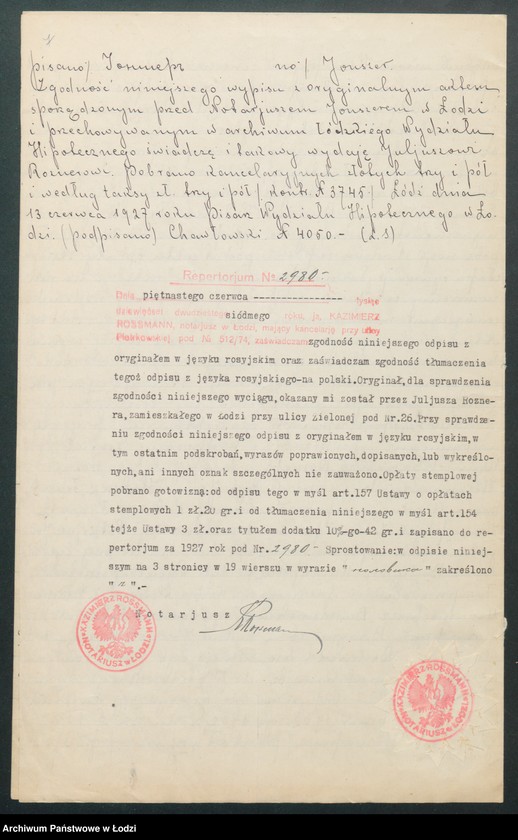 pisano/ Іонтеръ no/ Jonszer.
Zgodność niniejszego wypisu z oryginalnym aktem
sporządzonym przed Notarjuszem Jonszerem w Łodzi
i przechowywanym w archiwum Łódzkiego Wydziału
Hipotecznego świadczę i takowy wydaję Juljuszowi
Roznerowi. Pobrano kancelaryjnych złotych trzy i pół
i według taksy zł. trzy i pół / kontr. N 3745 / Łódź dnia
13 czerwca 1927 roku Pisarz Wydziału Hipotecznego w Ło-
dzi. (podpisano) Chawłowski N 4050.-
Repertorjum № 2980-
Dnia piętnastego czerwca ---------------- tysiąc
dziewięćset dwudziestego siódmego roku, ja, KAZIMIERZ
ROSSMANN, notarjusz w Łodzi, mający kancelarję przy ulicy
Piotrkowskiej pod № 512/74, zaświadczam zgodność niniejszego odpisu z
oryginałem w języku rosyjskim oraz zaświadczam zgodność tłumaczenia
tegoż odpisu z języka rosyjskiego-na polski.Oryginał,dla sprawdzenia
zgodności niniejszego wyciągu,okazany mi został przez Juljusza Rozne-
ra,zamieszkałego w Łodzi przy ulicy Zielonej pod Nr.26.Przy sprawdze-
niu zgodności niniejszego odpisu z oryginałem w języku rosyjskim,w
tym ostatnim podskrobań,wyrazów poprawionych,dopisanych,lub wykreślo-
nych,ani innych oznak szczególnych nie zauważono.Opłaty stemplowej
pobrano gotowizną:od odpisu tego w myśl art.157 Ustawy o opłatach
stemplowych 1 zł.20 gr.i od tłumaczenia niniejszego w myśl art.154
tejże Ustawy 3 zł.oraz tytułem dodatku 10%-go-42 gr.i zapisano do re-
pertorjum za 1927 rok pod Nr. 2980- Sprostowanie:w odpisie niniej-
szym na 3 stronicy w 19 wierszu w wyrazie " половиса " zakreślono
" с ".-
Notarjusz
KRossman
KAZIMIERZ ROSSMANN
NOTARIUSZ w ŁODZI
KAZIMIERZ ROSSMANN
NOTARIUSZ w ŁODZI
Archiwum Państwowe w Łodzi